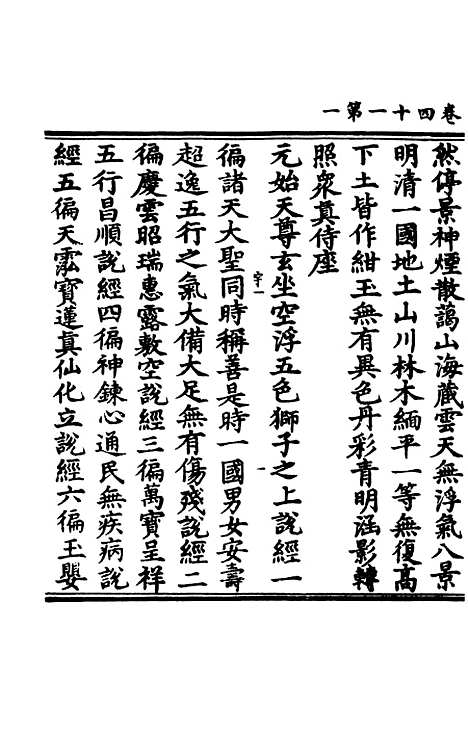 卷四十一第一
然停景神煙散藹山海藏雲天無浮氣八景
明清一國地土山川林木緬平一等無復高
下土皆作紺玉無有異色丹彩青明涵影轉
照衆真侍座
元始天尊玄坐空浮五色獅子之上說經一
徧諸天大聖同時稱善是時一國男女安壽
超逸五行之氣大備大足無有傷殘說經二
徧慶雲昭瑞惠露敷空說經三徧萬寶呈祥
五行昌順說經四徧神鍊心通民無疾病說
經五徧天霐寶蓮真仙化立說經六徧玉嬰